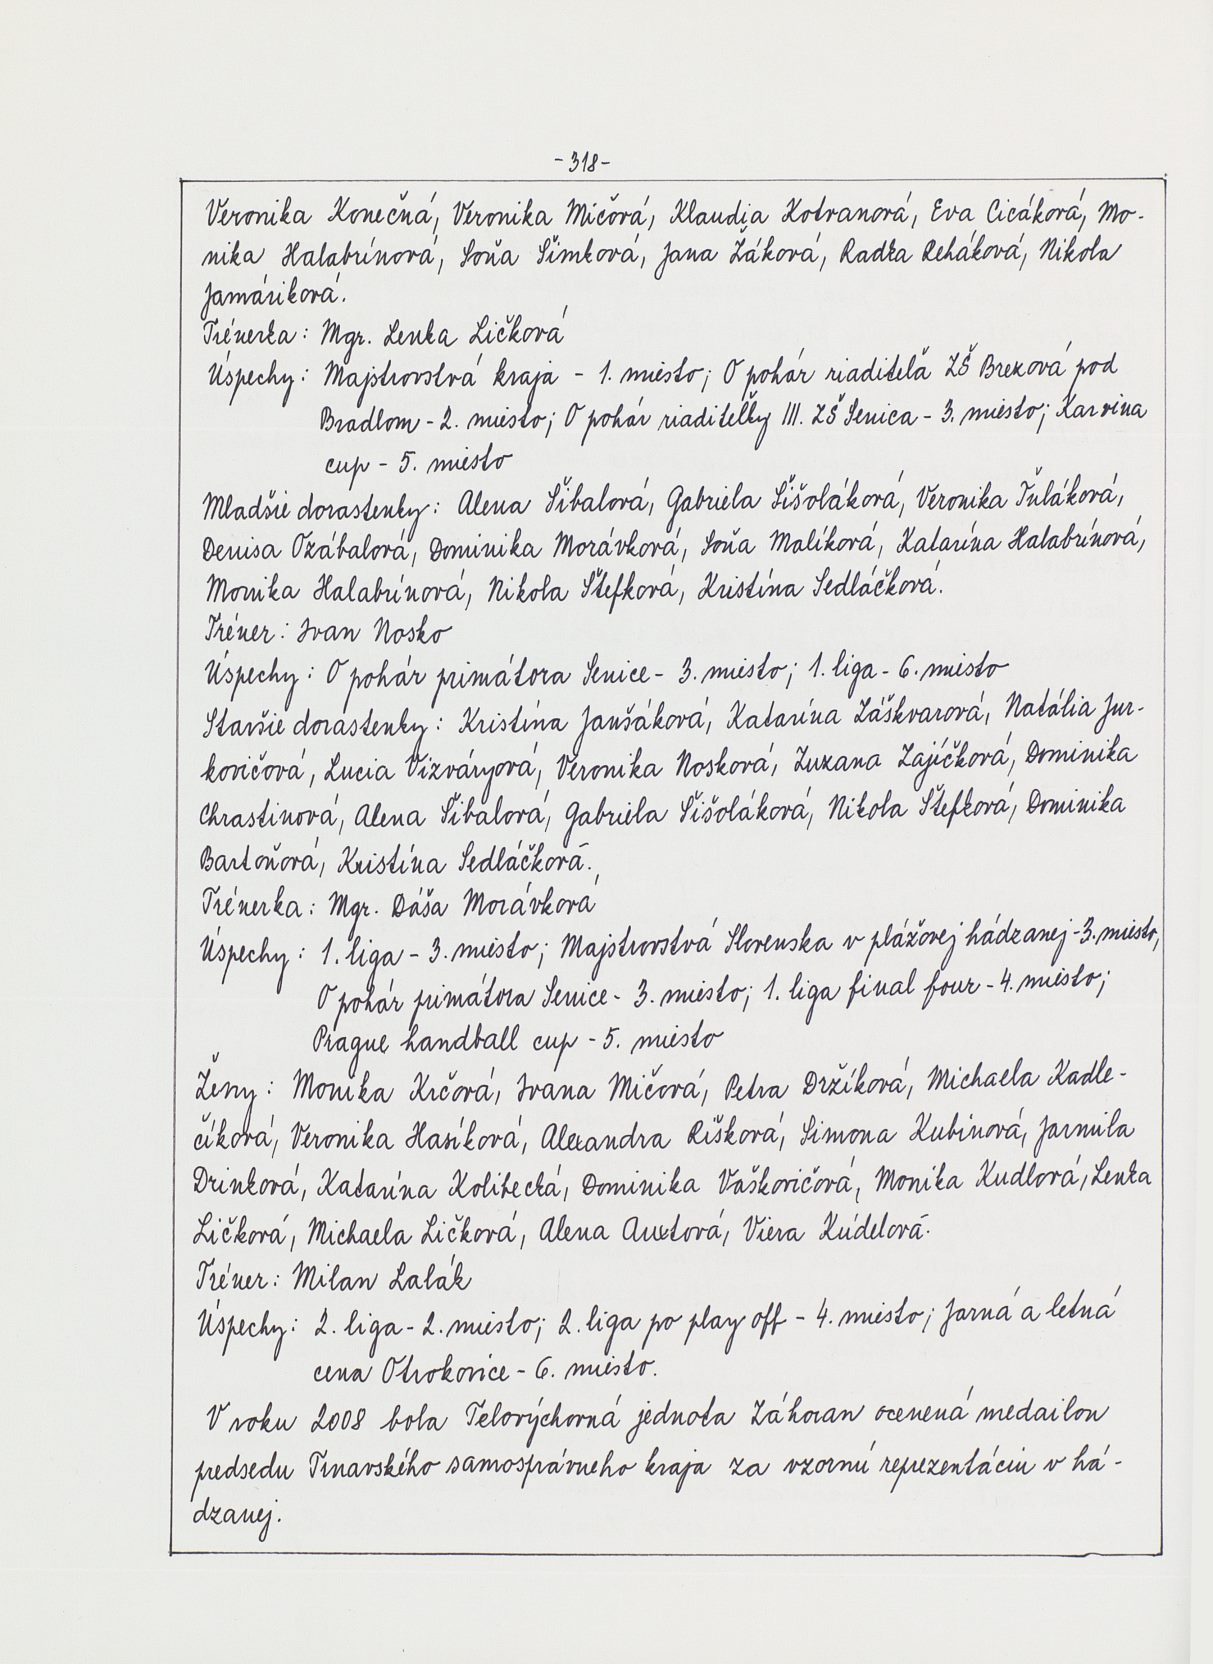 -318-
Veronika Konečná, Veronika Mičová, Klaudia Kotvanová, Eva Cicáková, Mo-
nika Halabrínová, Soňa Šimková, Jana Žáková, Radka Reháková, Nikola
Jamáriková.
Trénerka: Mgr. Lenka Ličková
Úspechy: Majstrovstvá kraja - 1. miesto; O pohár riaditeľa ZŠ Brezová pod
Bradlom - 2. miesto; O pohár riaditeľky III. ZŠ Senica - 3. miesto; Karvina
cup - 5. miesto
Mladšie dorastenky: Alena Šibalová, Gabriela Šišoláková, Veronika Ťuláková,
Denisa Ozábalová, Dominika Morávková, Soňa Malíková, Katarína Halabrínová,
Monika Halabrínová, Nikola Štefková, Kristína Sedláčková.
Tréner: Ivan Nosko
Úspechy: O pohár primátora Senice - 3. miesto; 1. liga - 6. miesto
Staršie dorastenky: Kristína Janšáková, Katarína Záškvarová, Natália Jur-
kovičová, Lucia Vizváryová, Veronika Nosková, Zuzana Zajíčková, Dominika
Chrastinová, Alena Šibalová, Gabriela Šišoláková, Nikola Štefková, Dominika
Bartoňová, Kristína Sedláčková.
Trénerka: Mgr. Dáša Morávková
Úspechy: 1. liga - 3. miesto; Majstrovstvá Slovenska v plážovej hádzanej - 3. miesto,
O pohár primátora Senice - 3. miesto; 1. liga final four - 4. miesto;
Prague handball cup - 5. miesto
Ženy: Monika Krčová, Ivana Mičová, Petra Držíková, Michaela Kadle-
číková, Veronika Hasíková, Alexandra Rišková, Simona Kubinová, Jarmila
Drinková, Katarína Kolibecká, Dominika Vaškovičová, Monika Kudlová, Lenka
Ličková, Michaela Ličková, Alena Auxtová, Viera Kúdelová.
Tréner: Milan Lalák
Úspechy: 2. liga - 2. miesto; 2. liga po play off - 4. miesto; Jarná a letná
cena Otrokovice - 6. miesto.
V roku 2008 bola Telovýchovná jednota Záhoran ocenená medailou
predsedu Trnavského samosprávneho kraja za vzornú reprezentáciu v há-
dzanej.